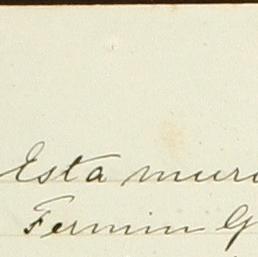 Esta muri
Fermin G